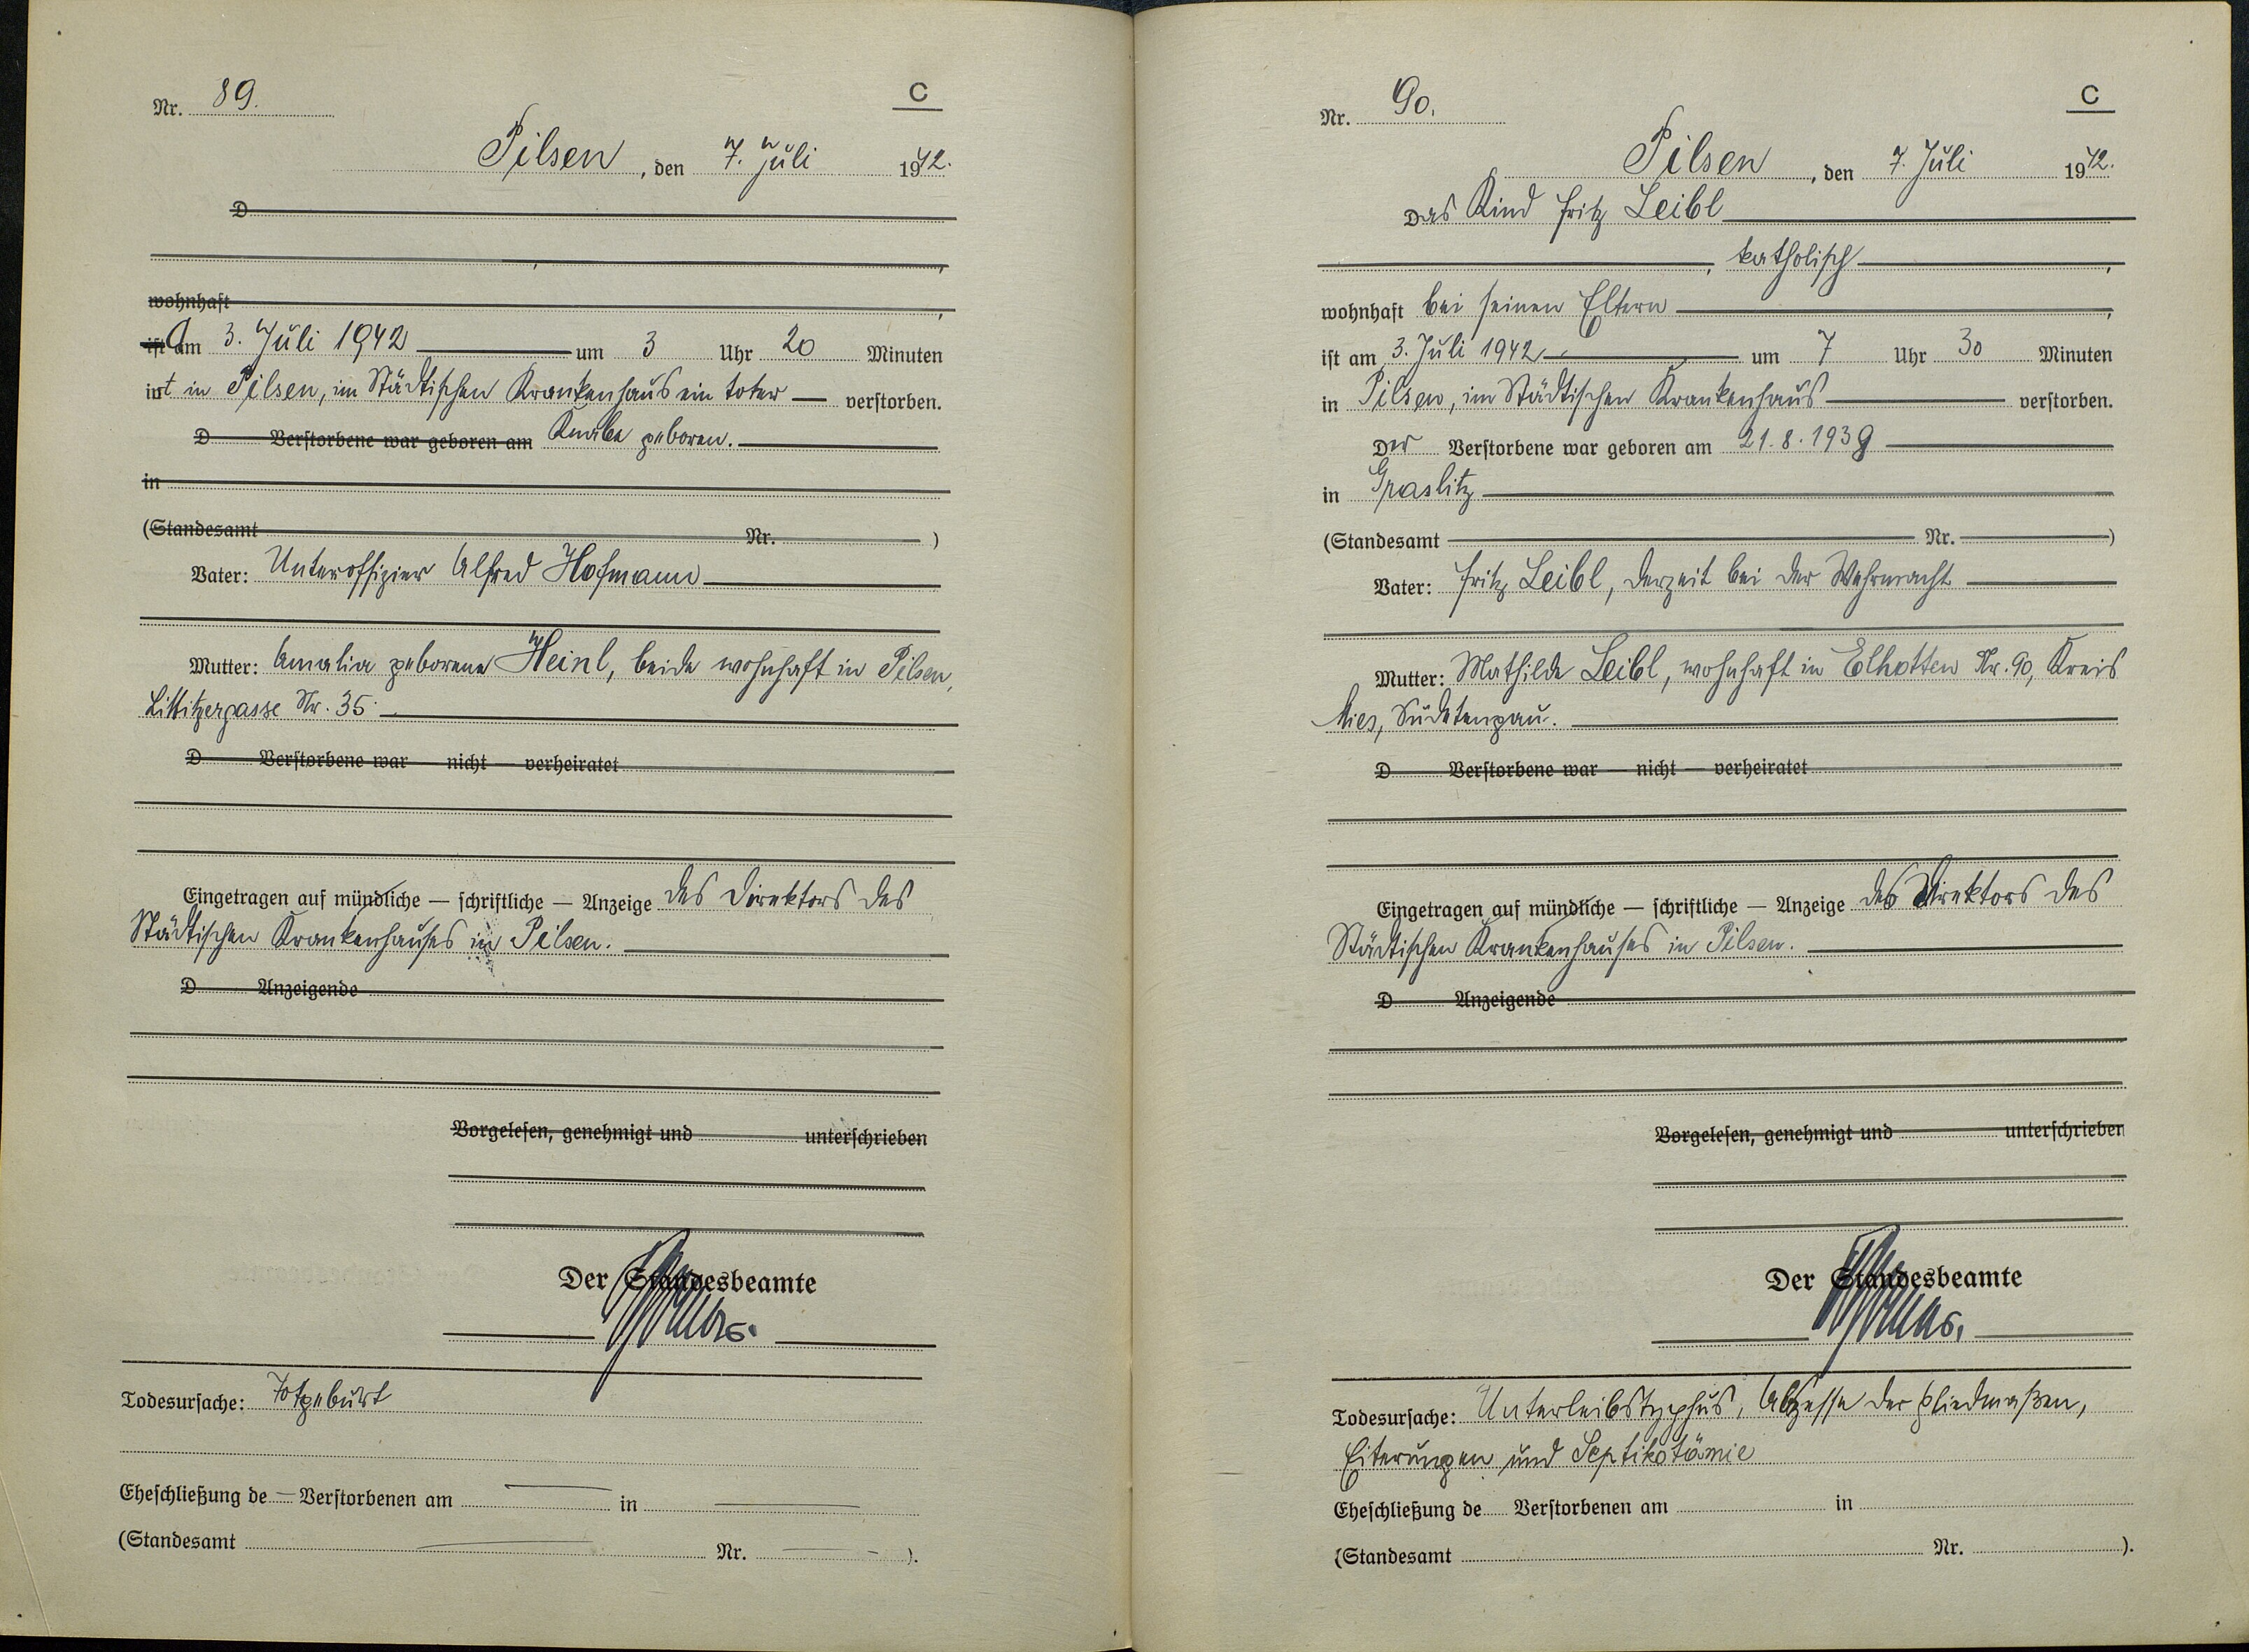 Nr. 89.
C
Pilsen, den 7. Juli 1942.
D
wohnhaft
ist Am 3. Juli 1942 um 3 Uhr 20 Minuten
ist in Pilsen, im Städtischen Krankenhaus ein toter verstorben.
D Verstorbene war geboren am Knabe geboren.
in
(Standesamt Nr. )
Vater: Unteroffizier Alfred Hofmann
Mutter: Amalia geborene Heinl, beide wohnhaft in Pilsen,
Littitzergasse Nr. 35.
D Verstorbene war — nicht — verheiratet
Eingetragen auf mündliche — schriftliche — Anzeige des Direktors des
Städtischen Krankenhauses in Pilsen.
D Anzeigende
Vorgelesen, genehmigt und unterschrieben
Der Standesbeamte
Todesursache: Totgeburt
Eheschließung de — Verstorbenen am in
(Standesamt Nr. ).
Nr. 90.
C
Pilsen, den 7. Juli 1942.
Das Kind Fritz Leibl
, katholisch,
wohnhaft bei seinen Eltern,
ist am 3. Juli 1942 um 7 Uhr 30 Minuten
in Pilsen, im Städtischen Krankenhaus verstorben.
Der Verstorbene war geboren am 21.8.1939
in Graslitz
(Standesamt Nr. )
Vater: Fritz Leibl, derzeit bei der Wehrmacht
Mutter: Mathilde Leibl, wohnhaft in Elhotten Nr. 90, Kreis
Mies, Sudetengau.
D Verstorbene war — nicht — verheiratet
Eingetragen auf mündliche — schriftliche — Anzeige des Direktors des
Städtischen Krankenhauses in Pilsen.
D Anzeigende
Vorgelesen, genehmigt und unterschrieben
Der Standesbeamte
Todesursache: Unterleibstyphus, Abszesse der Gliedmaßen,
Eiterungen und Septikotämie
Eheschließung de Verstorbenen am in
(Standesamt Nr. ).